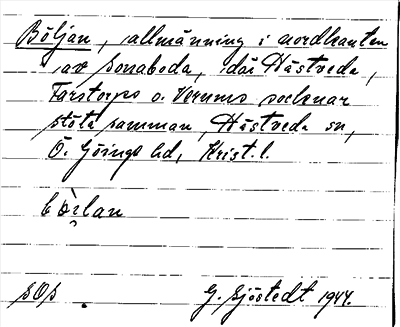 Böljan, allmänning i nordkanten
av Sonaboda, där Hästveda,
Farstorps o. Verums socknar
stöta samman, Hästveda sn,
Ö. Göinge hd, Krist. l.
SOS. G. Sjöstedt 1944.